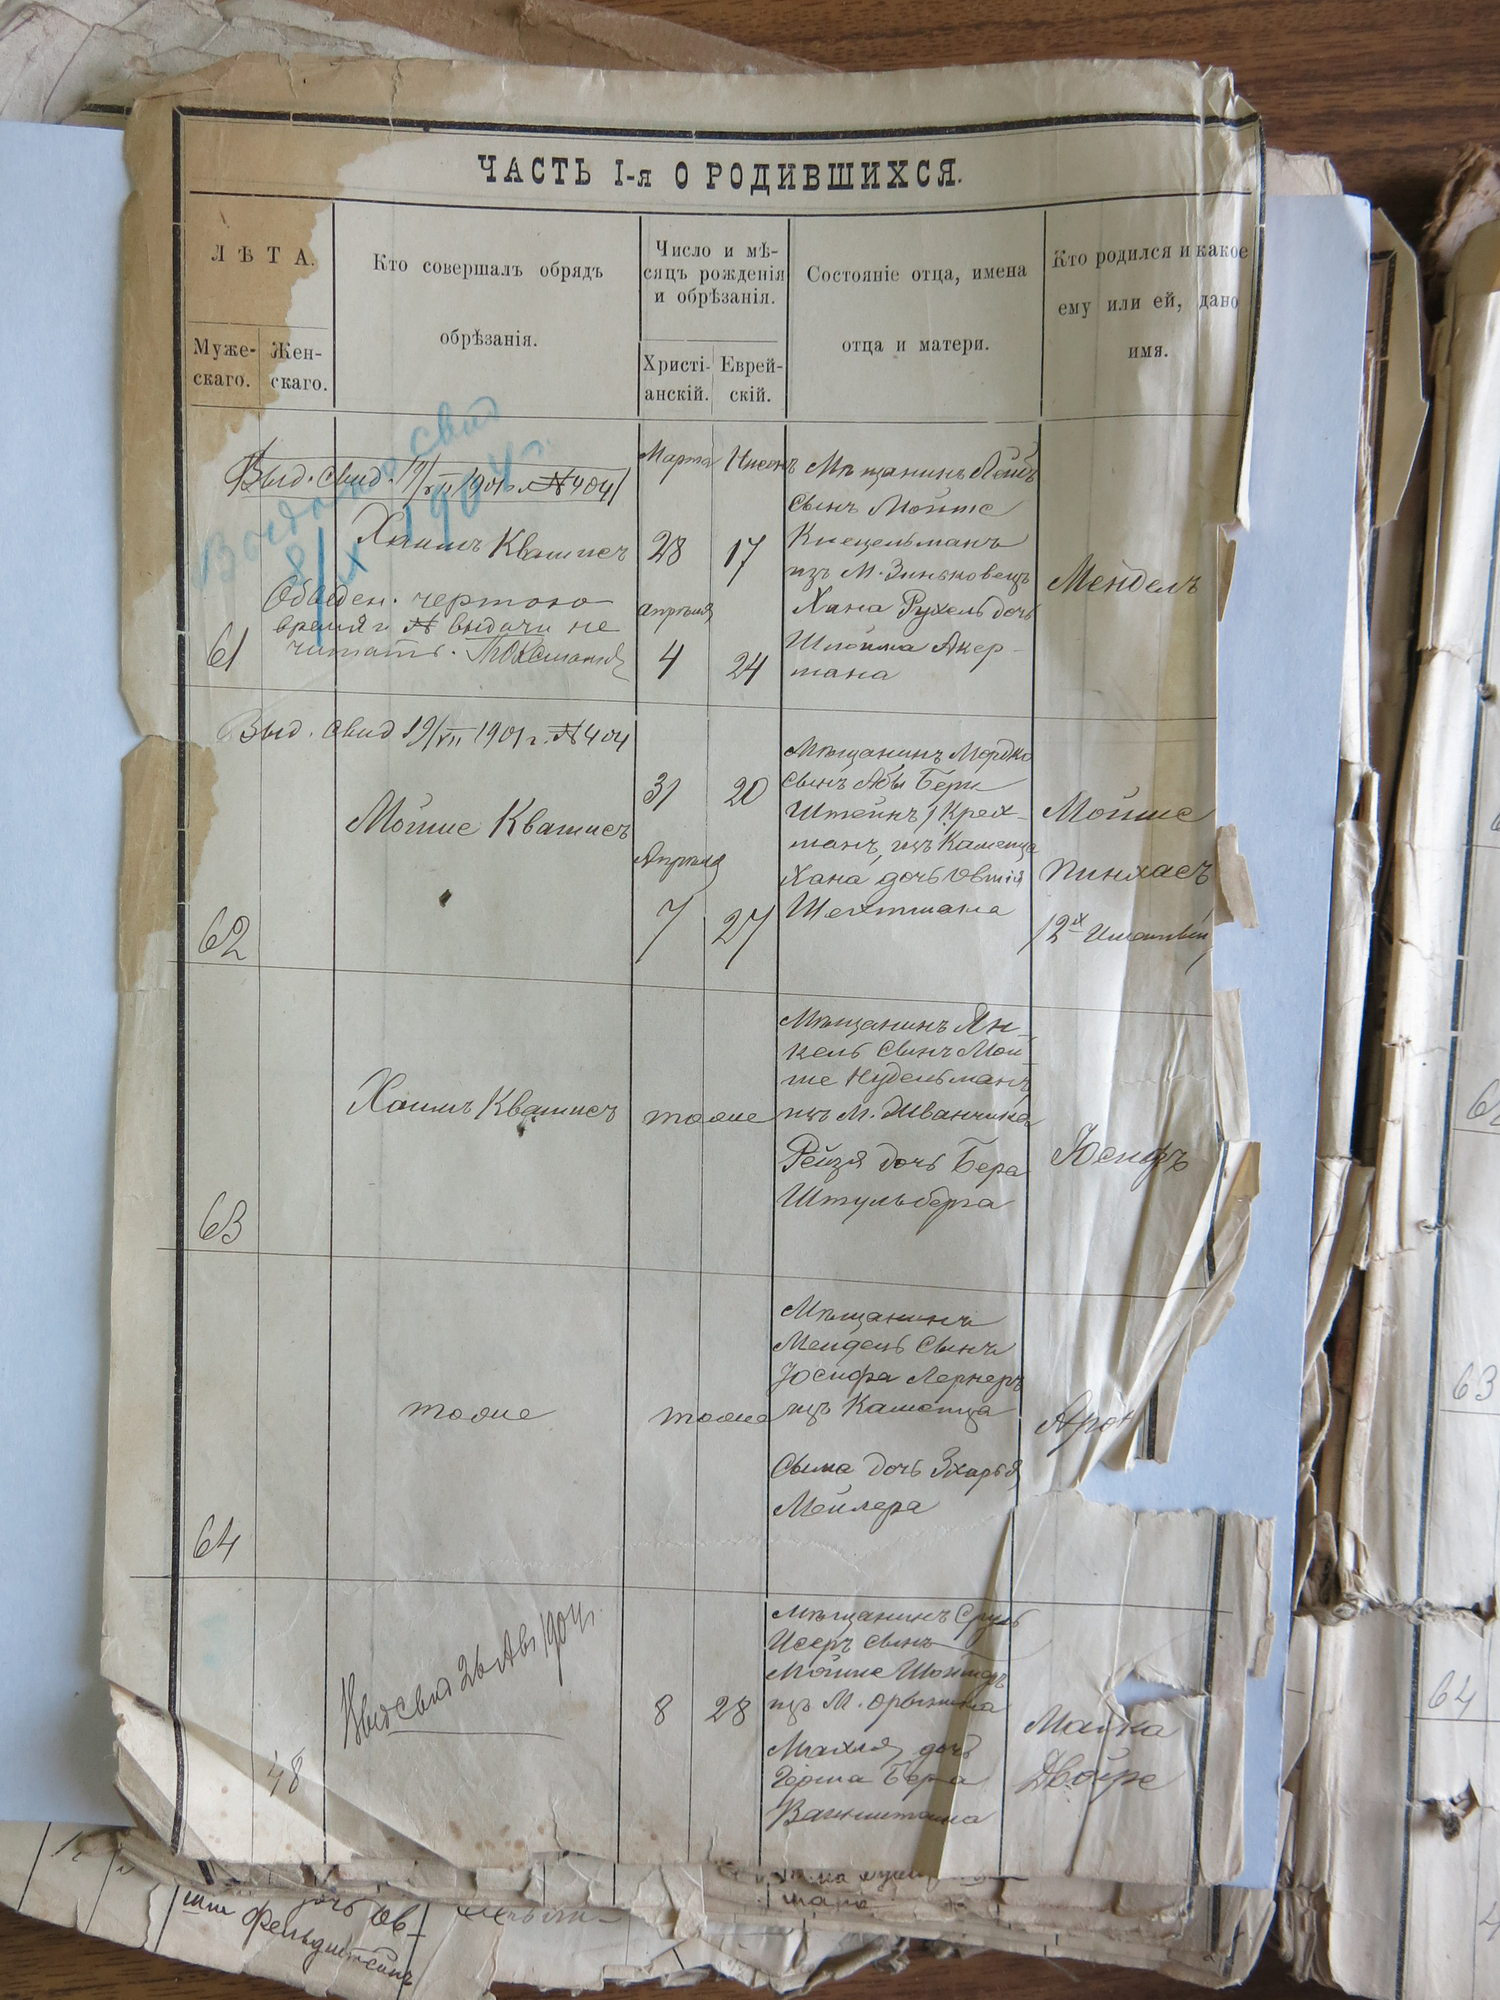 ЧАСТЬ I-я О РОДИВШИХСЯ.
ЛѢТА.
Муже-
скаго.
Жен-
скаго.
Кто совершалъ обрядъ
обрѣзанія.
Число и мѣ-
сяцъ рожденія
и обрѣзанія.
Христі-
анскій.
Еврей-
скій.
Состояніе отца, имена
отца и матери.
Кто родился и какое
ему или ей, дано
имя.
Выд. свид. 19/VII 1901 г. № 404
8/IX 1904 г.
Хаимъ Квашисъ
Обведен. чертою
время и № выдачи не
читать.
61
Марта
28
Апрѣля
4
Нисонъ
17
24
Мѣщанинъ Лейб
сынъ Мойше
Кисельманъ
изъ М. Зиньковецъ
Хана Рухель дочь
Шлойма Акер-
мана
Мендель
Выд. свид 19/VII 1901 г. № 404
Мойше Квашисъ
62
31
Апрѣля
7
20
27
Мѣщанинъ Мордко
сынъ Абы Бери
Штейнъ / Крех-
манъ, изъ Каменца
Хана дочь Овшія
Шехтмана
Мойше
Пинхасъ
/ 2х именный /
Хаимъ Квашисъ
63
тоже
Мѣщанинъ Ян-
кель сынъ Мой-
ше Нудельманъ
изъ М. Жванчика
Рейзя дочь Бера
Штульберга
Іосифъ
тоже
64
тоже
Мѣщанинъ
Мендель сынъ
Іосифа Лернеръ
изъ Каменца
Сыма дочь Зхарья
Мейлера
Арон
Выд свид 26 Авг 1904 г.
48
8
28
Мѣщанинъ Сруль
Исеръ сынъ
Мойше
изъ М. Орынина
Махля дочь
Герша Бера
Вайнштейна
Малка
Двойре
дочь Ов-
Фельдштейнъ
63
64